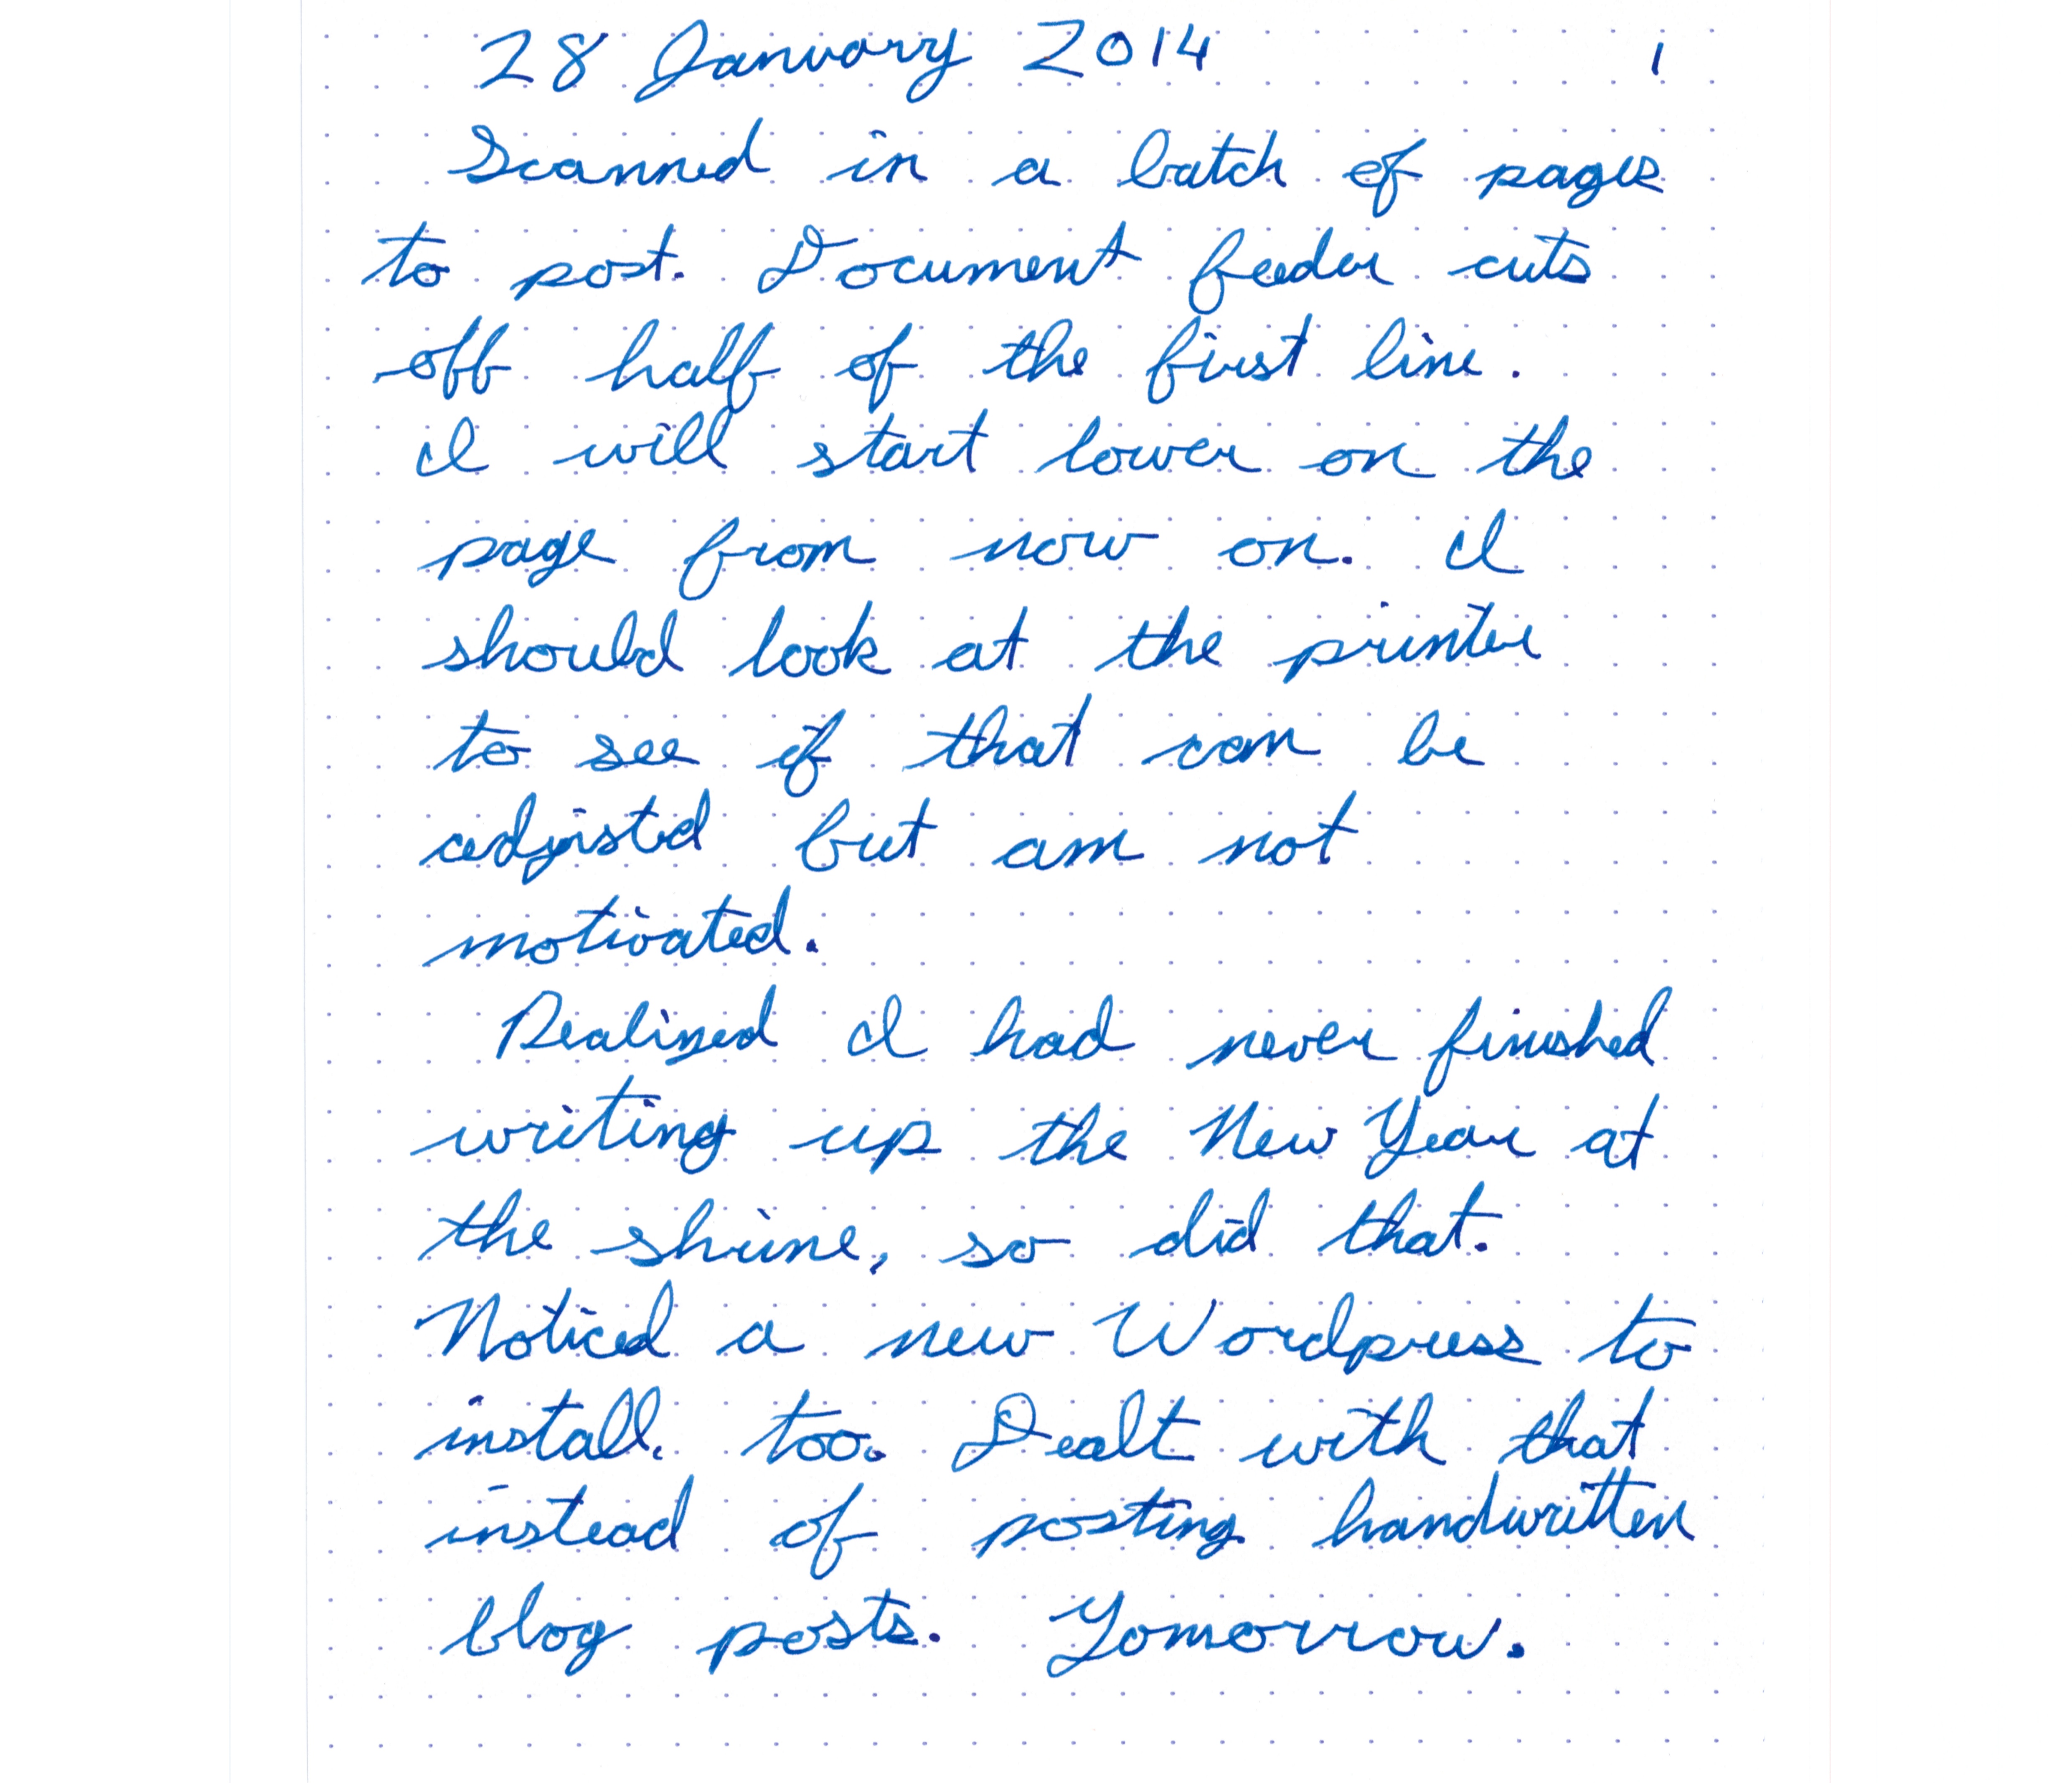 28 January 2014 1
Scanned in a batch of pages
to post. Document feeder cuts
off half of the first line.
I will start lower on the
page from now on. I
should look at the printer
to see if that can be
adjusted but am not
motivated.
Realized I had never finished
writing up the New Year at
the shrine, so did that.
Noticed a new Wordpress to
install, too. Dealt with that
instead of posting handwritten
blog posts. Tomorrow.